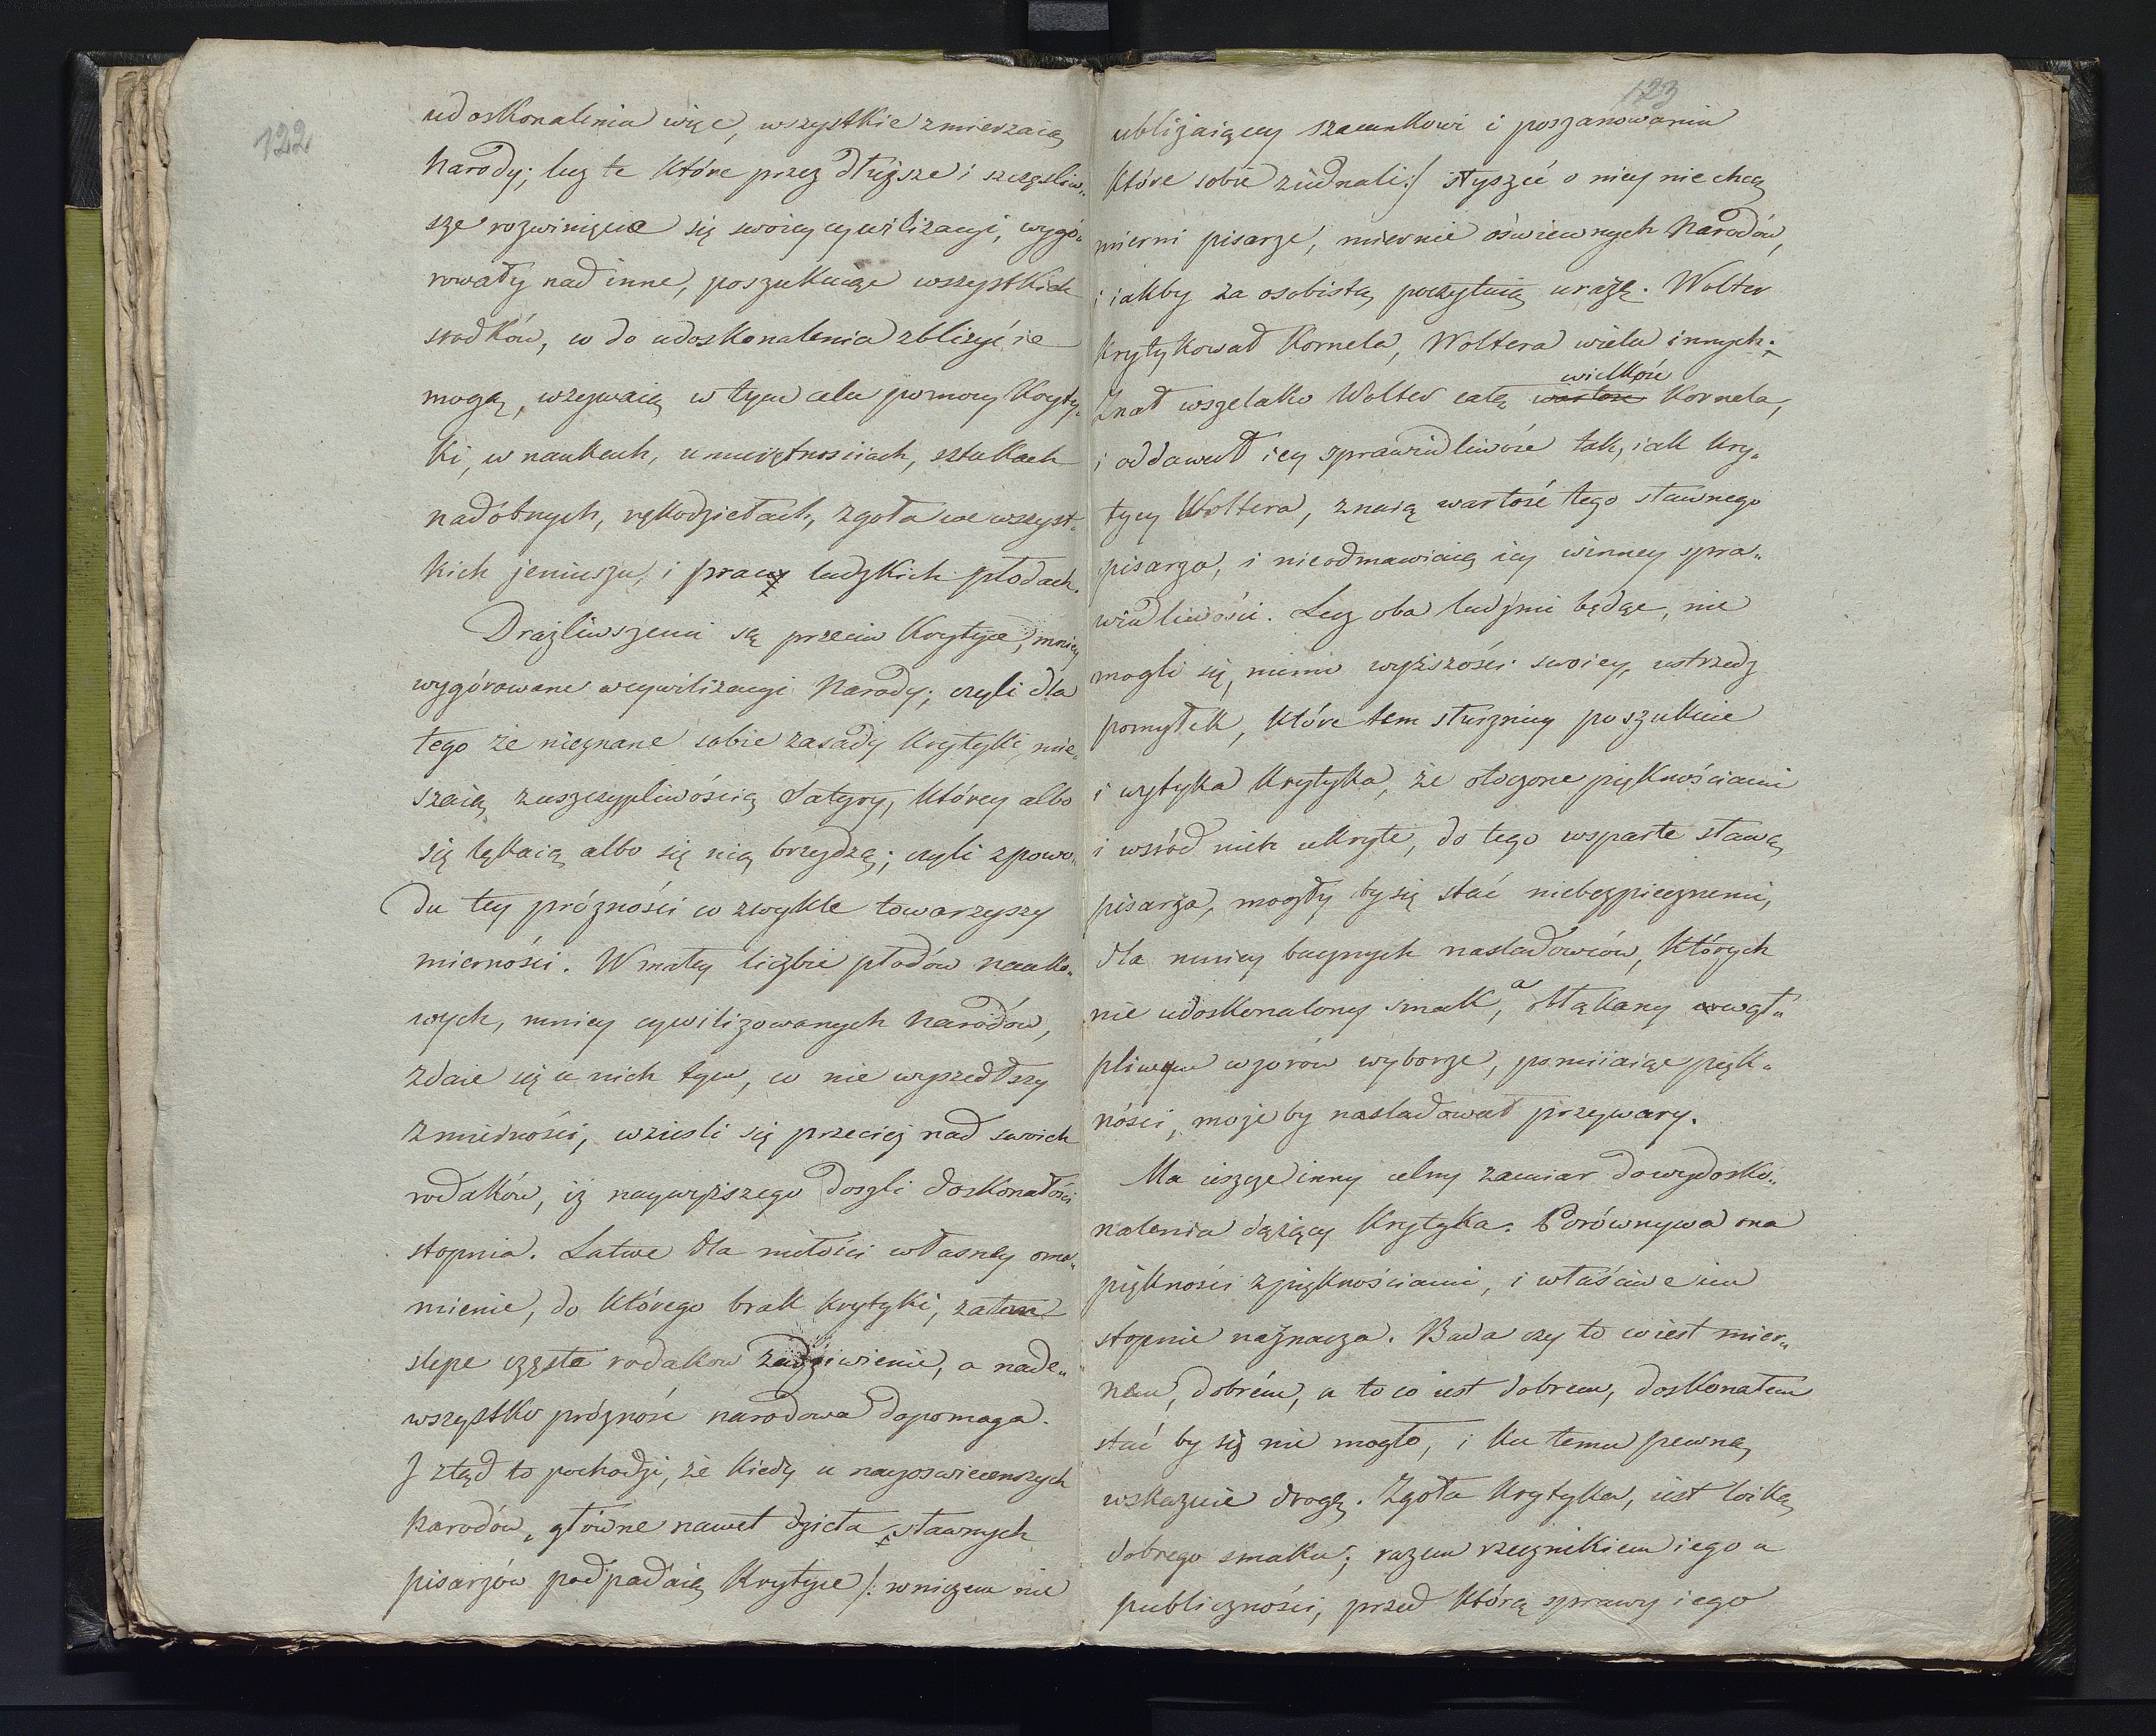 122
udoskonalenia więc, wszystkie zmierzaią
Narody; lecz te które przez dłuższe i szczęśliw„
sze rozwinięcie się swoiey cywilizacyi, wygó„
rowały nad inne, poszukuiąc wszystkich
srodków, co do udoskonalenia zbliżyć ie
mogą, wzywaią w tym celu pomocy Kryty„
ki, w naukach, umieiętnosciach, sztukach
nadobnych, rękodziełach, zgoła we wszyst„
kich jeniuszu, i pracy ludzkich płodach.
Draźliwszemi są przeciw Krytyce, mniey
wygórowane w cywilizacyi Narody; czyli dla
tego że nieznane sobie zasady krytyki, mie„
szaią z uszczypliwością Satyry, którey albo
się lękaią albo się nią brzydzą; czyli z powo„
du tey prózności co zwykle towarzyszy
mierności. W małey liczbie płodów nauko„
wych, mniey cywilizowanych Narodów,
zdaie się u nich tym, co nie wyszedłszy
z mierności, wzniesli się przeciez nad swoich
rodaków, iż naywyższego doszli doskonałości
stopnia. Łatwe dla miłości własney oma„
mienie, do którego brak krytyki, zatem
slepe częste rodakow zadziwienie, a nade„
wszystko próżność narodowa dopomaga.
I ztąd to pochodzi, że kiedy u nayoswieceńszych
Narodów, główne nawet dzieła sławnych
pisarzów podpadaią Krytyce /: w niczem nie
123
ubliżaiącey szacunkowi i poszanowaniu
które sobie ziednali:/ słyszéć o niey nie chcą
mierni pisarze, miernie oświeconych Narodów,
i iakby za osobistą poczytuią urazę. Wolter
krytykował Kornela, Woltera wielu innych.
wielkość
Znał wszelako Wolter całą wartosc Kornela,
i oddawał iey sprawiedliwość tak, iak kry„
tycy Woltera, znaią wartość tego sławnego
pisarza, i nieodmawiaią iey winney spra„
wiedliwości. Lecz oba ludźmi będąc, nie
mogli się, mimo wyższości swoiey, ustrzedz
pomyłek, które tem słuszniey poszukuie
i wytyka krytyka, że otoczone pięknościami
i wsród nich ukryte, do tego wsparte sławą
pisarza, mogły by się stać niebezpiecznemi,
dla mniey bacznych nasladowców, których
a
nie udoskonalony smak, obłąkany w wąt„
pliwym wzorów wyborze, pomiiaiąc pięk„
ności, może by nasladował przywary.
Ma ieszcze inny celny zamiar do wydosko„
nalenia dążący Krytyka. Porównywa ona
piękności z pięknościami, i właściwe im
stopnie naznacza. Bada czy to co iest mier„
nem, dobrém, a to co iest dobrem, doskonałem
stać by się nie mogło, i ku temu pewną
wskazuie drogę. Zgoła Krytyka, iest loiką
dobrego smaku; razem rzecznikiem iego u
publiczności, przed którą sprawy iego